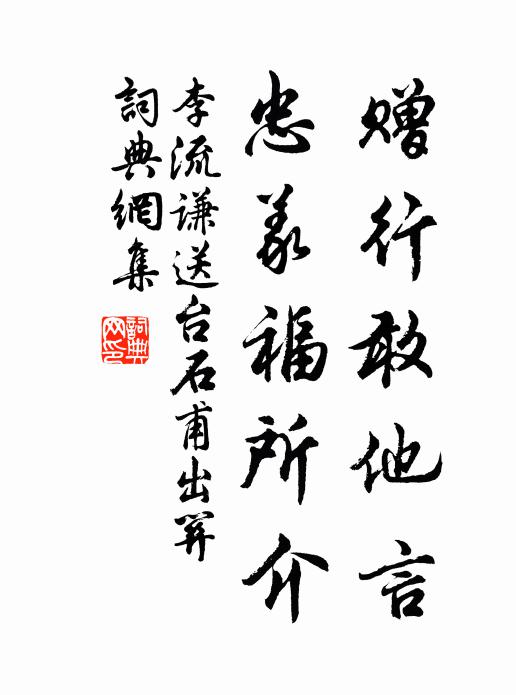 贈行敢他言
忠義福所介
李流謙送台石甫出關
詞典網集
詞典网印